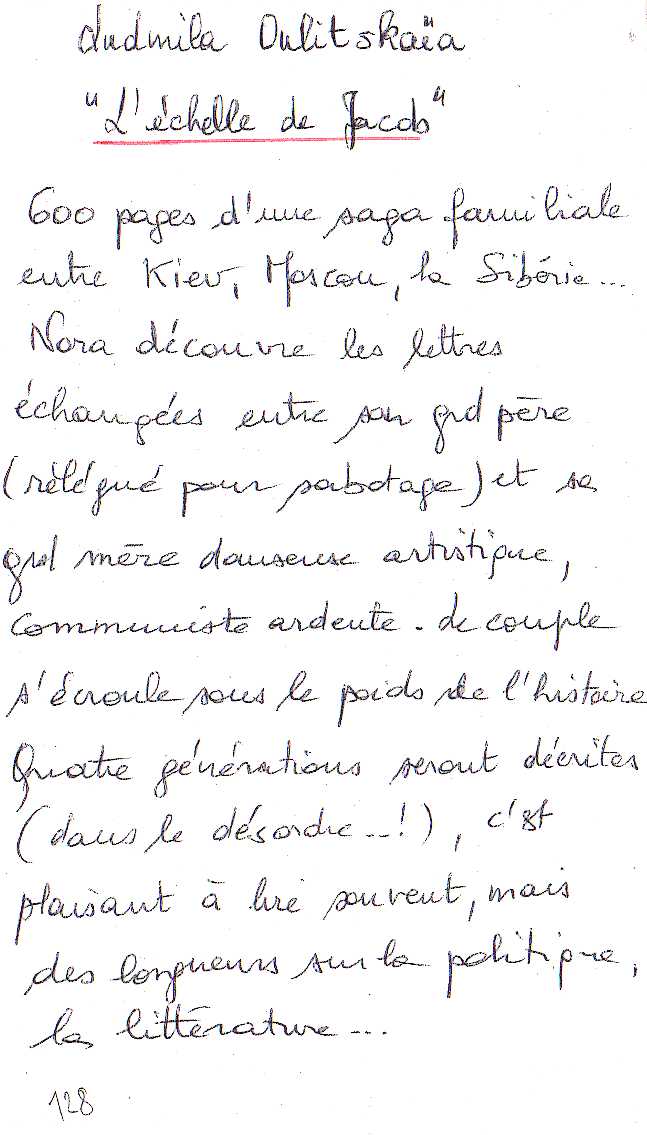 Ludmila Oulitskaïa
"L'échelle de Jacob"
600 pages d'une saga familiale
entre Kiev, Moscou, la Sibérie...
Nora découvre les lettres
échangées entre son grd père
(rélégué pour sabotage) et sa
grd mère danseuse artistique,
communiste ardente. Le couple
s'écroule sous le poids de l'histoire
Quatre générations seront décrites
(dans le désordre...!), c'est
plaisant à lire souvent, mais
des longueurs sur la politique,
la littérature...
128